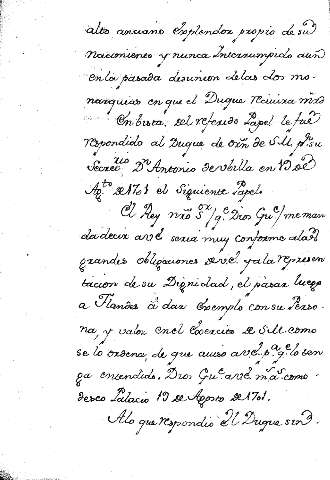 alto anciano explendor propio de su
Nacimiento y nunca Interrumpido aun
en la pasada desunion de las dos mo-
narquias en que el Duque
En bista del referido Papel le fue
respondido al Duque de orn de S.M. pr su
Secrerio Dn Antonio de Ubilla en 19 de
Agto de 1701 el Siguiente Papel
El Rey nro Sor (qe Dios Gue) me man
da decir a v.e. seria muy conforme a las
grandes obligaciones de v.e. y a la represen
tacion de su Dignidad, el pasar luego
a Flandes â dar Exemplo con su Perso-
na, y valor en el Exercito de S.M. como
se lo ordena, de que aviso a v.e. pa qe lo ten
ga entendido. Dios Gue a v.e. ms as como
deseo Palacio 19 de Agosto de 1701.
A lo que respondio el Duque